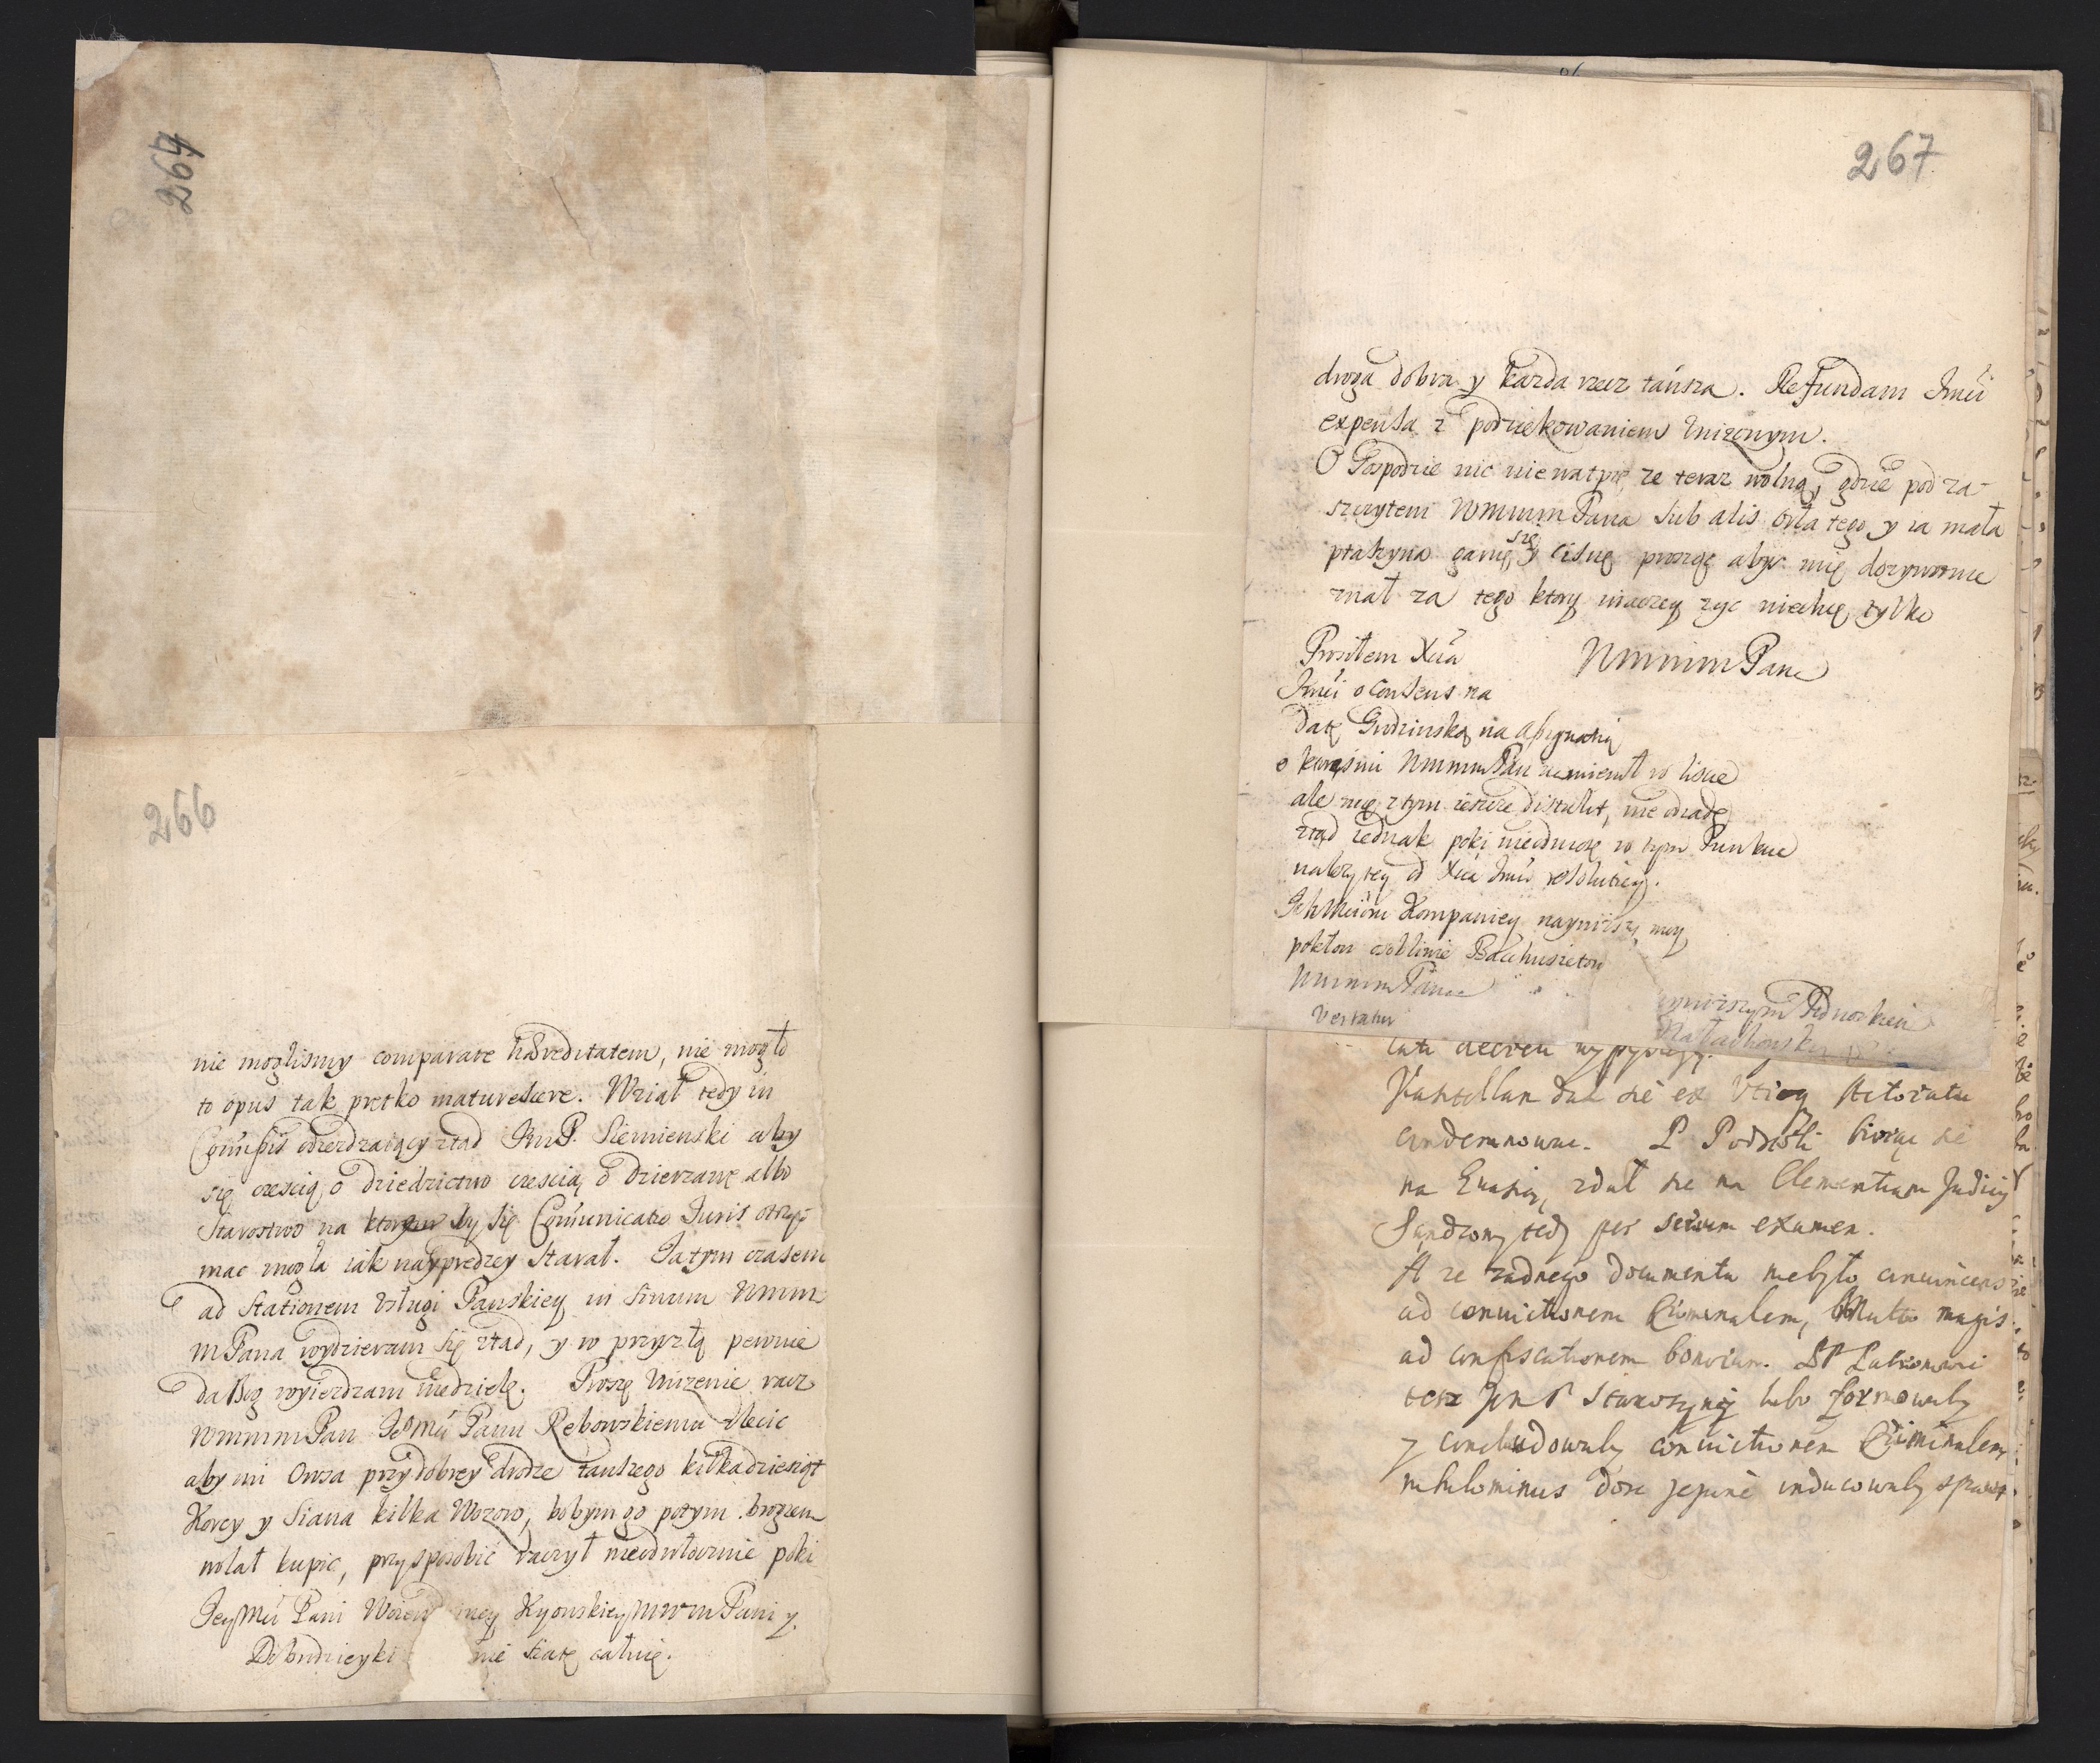 264
266
nie moglismy comparare haereditatem, nie mogło
to opus tak prętko maturescere. Wziął tedy in
Compis odzerdzaiący ztąd ImP. Siemienski aby
się czescią o dziedzictwo czescią o dzierzawę albo
Starostwo na ktorym by się Communicatio Juris otrzy-
mac mogła iak nayprędzey Starał. Ja tym czasem
ad Stationem Usługi Panskiey in Sinum Wmm
mPana wydzieram się ztąd, y w przyszłą pewnie
da Bog wyiezdzam niedzielę. Proszę Unizenie racz
WmmmPan JeoMci Panu Rębowskiemu zlecic
aby mi Owsa przy dobrey drodze tanszego kilkadziesiąt
Korcy y Siana kilka Wozow, bobym go potym
wolał kupic, przysposobić raczył nieodwłocznie poki
JeyMci Pani mey Kyowskiey MWmPani y
Dobrodzieyki nie
267
droga dobra y kazda rzecz tańsza. Refundam Jmci
expensa z podziękowaniem Unizonym.
O Gospodzie nic nie wątpię ze teraz wolna, gdzie pod za-
szczytem WmmmPana Sub alis Orła tego y ia mała
ptaszyna garnę się y Cisnę proszę abys mię dozywotnie
znał za tego ktory inaczey zyc niechcę, tylko
Prosiłem Xcia WmmmPana
Jmci o Consens na
datę Grodzinską na Assygnatią
o ktorym mi WmmmPan namienił w liscie
ale się z tym ieszcze distulit, nie odiadę
ztąd iednak poki nieodniosę w tym Punkcie
nalezytey od Xcia Jmci resolutiey.
IchMciom Kompaniey naynizszy moy
pokłon osobliwie Bacchusietow
WmmmPana
Vertatur
naynizszym Podnozkiem
Małachowski
Kasztellan dał się ex Actoratu
condemnowac. P. biorąc się
na Evasią, zdał się na Clementiam Judicij
Sądzony tedy per serium examen.
A ze zadnego documentu niebyło convincens
ad convictionem Criminalem, Multo magis
ad confiscationem bonorum. PP
tesz JmP Starosciney lubo formowaly
y concludowaly convictionem Criminalem
nihilominus dosc jejune inducowaly sprawę